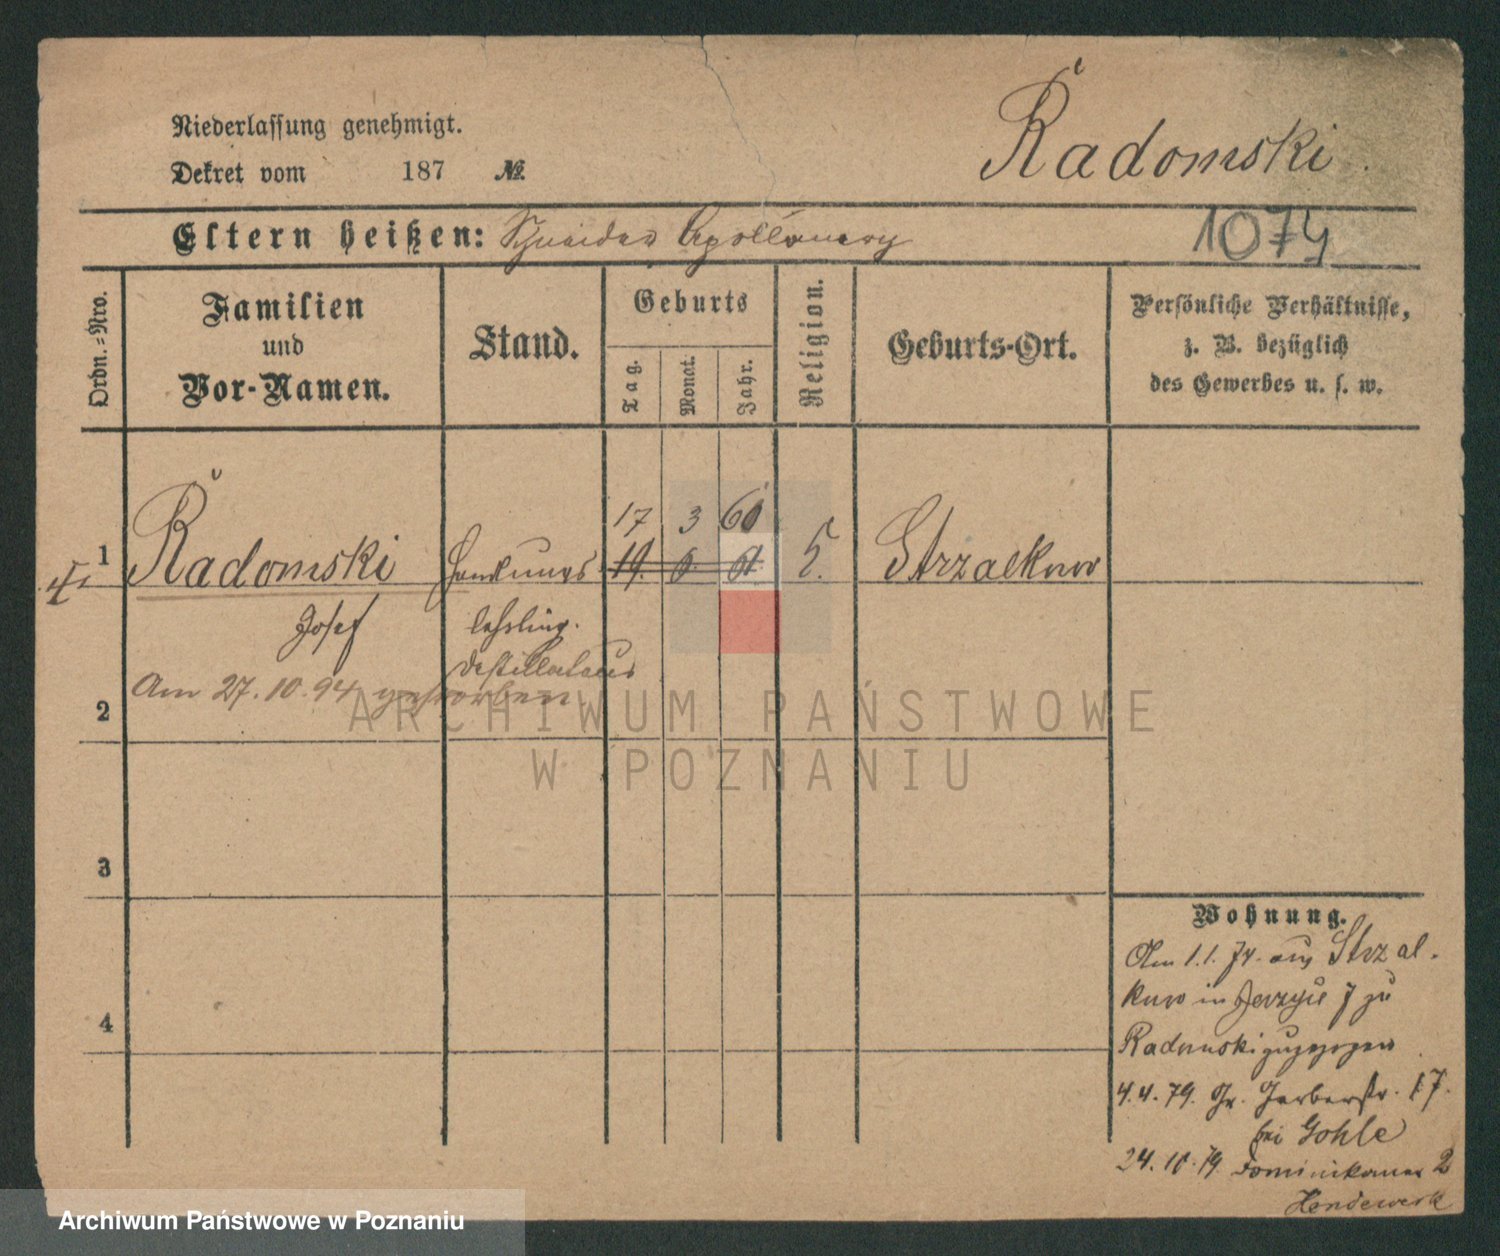 Niederlassung genehmigt.
Dekret vom 187 №.
Radomski.
Eltern heißen: Schneider Apollinary
1074
Ordn.-Nro.
Familien
und
Vor-Namen.
Stand.
Geburts
Tag.
Monat.
Jahr.
Religion.
Geburts-Ort.
Persönliche Verhältnisse,
z. B. bezüglich
des Gewerbes u. s. w.
17 3 60
1 Radomski Handlungs 19. Strzalkowo
Josef lehrling.
Destillateur
2 Am 27.10.94 gestorben
3
4
Wohnung.
Am 1.1.74. aus Strzal-
kowo in Jerzyce 7 zu
Radomski zugezogen
4.4.79. Gr. Gerberstr. 17.
bei Gohle
24.10.79. Dominikaner 2
Hendewerk
ARCHIWUM PAŃSTWOWE
W POZNANIU
Archiwum Państwowe w Poznaniu